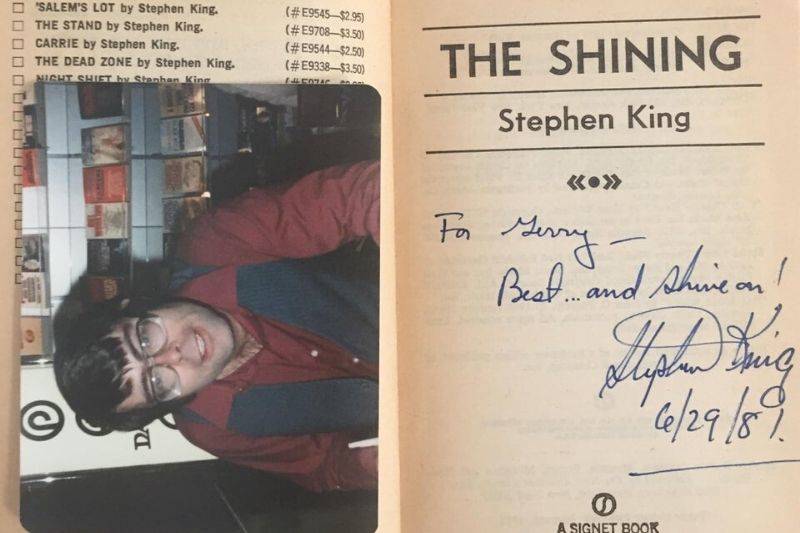 'SALEM'S LOT by Stephen King. (#E9545—$2.95)
THE STAND by Stephen King. (#E9708—$3.50)
CARRIE by Stephen King. (#E9544—$2.50)
THE DEAD ZONE by Stephen King. (#E9338—$3.50)
NIGHT SHIFT by Stephen King.
THE SHINING
Stephen King
For Gerry —
Best...and shine on!
Stephen King
6/29/81.
A SIGNET BOOK